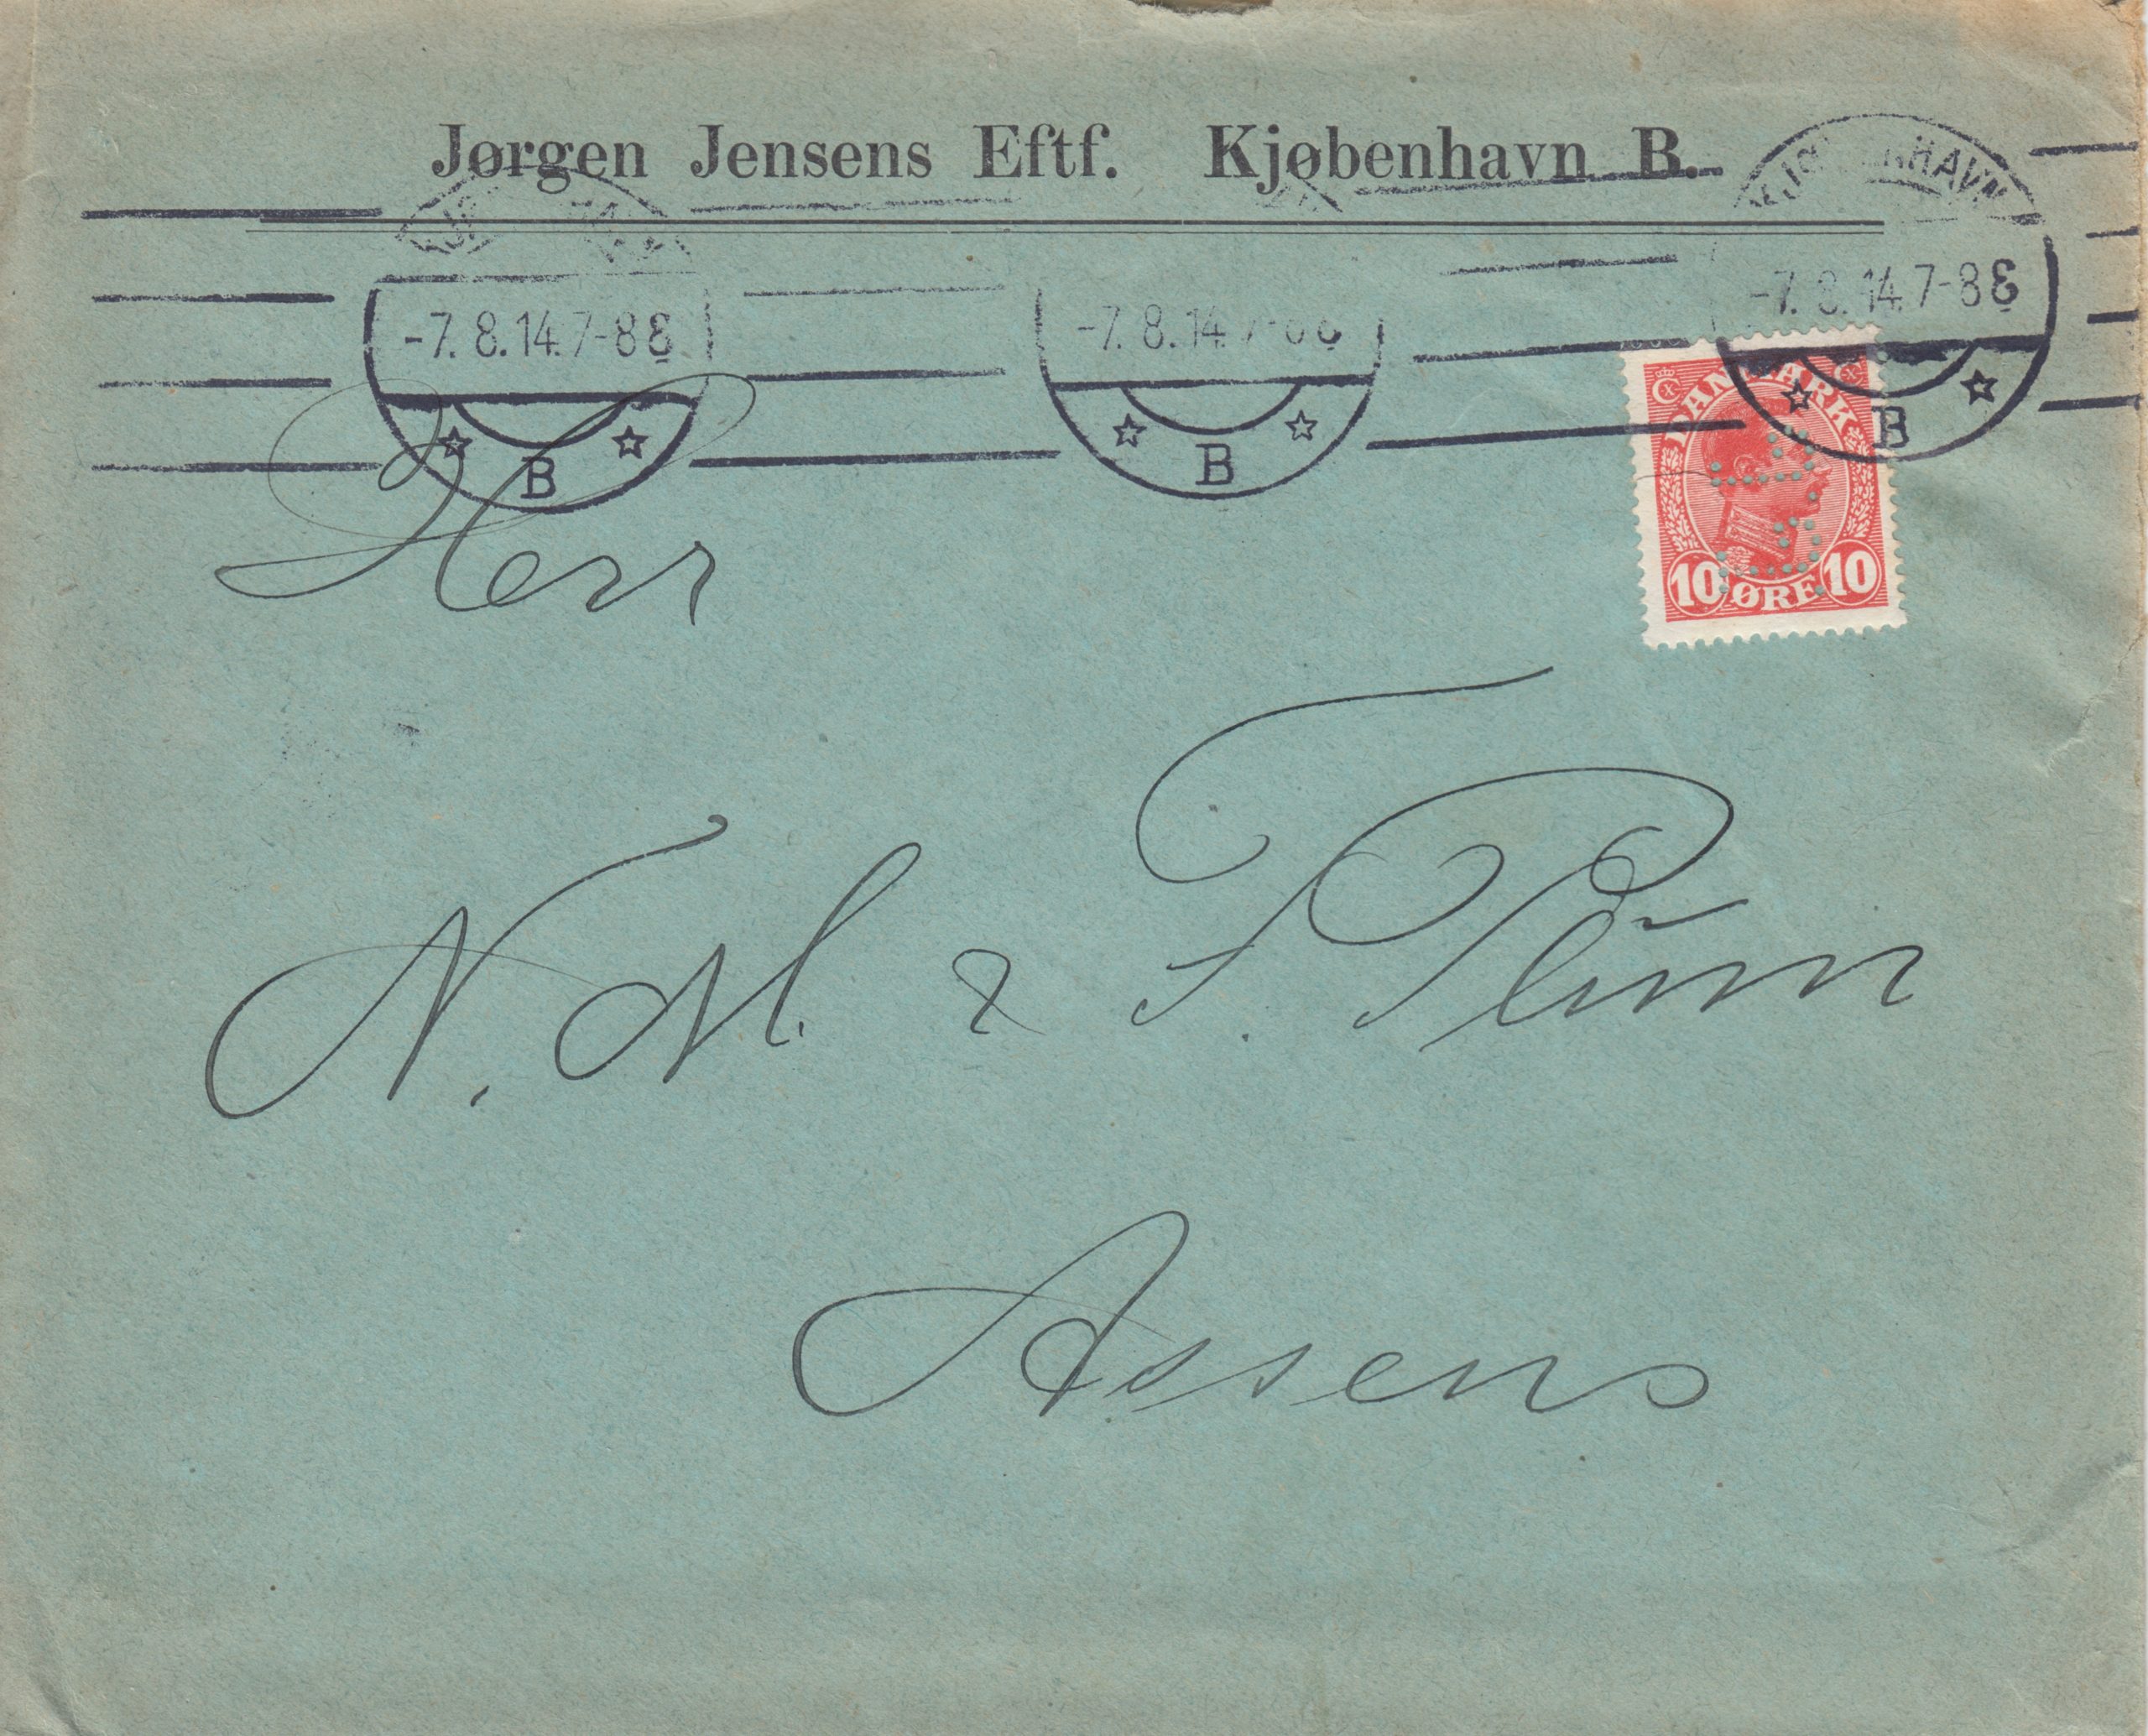 Jørgen Jensens Eftf. Kjøbenhavn B.
KJØBENHAVN
-7. 8. 14. 7-8 E
B
-7. 8. 14. 7-8 E
B
-7. 8. 14. 7-8 E
B
DANMARK
10 ØRE 10
Herr
N. M. & F. Plum
Assens